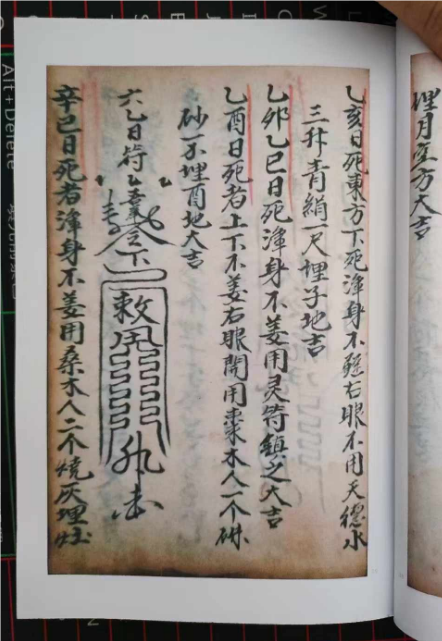 埋月空方大吉
乙亥日死東方下死渾身不強右眼不用天德水
三升青絹一尺埋子地吉
乙卯乙巳日死渾身不姜用灵符鎮之大吉
乙酉日死者上下不姜右眼閉用棗木人一个硃
砂一不埋酉地大吉
六乙日符
敕
辛巳日死者渾身不姜用桑木人二个燒灰埋灶
Alt+Delete